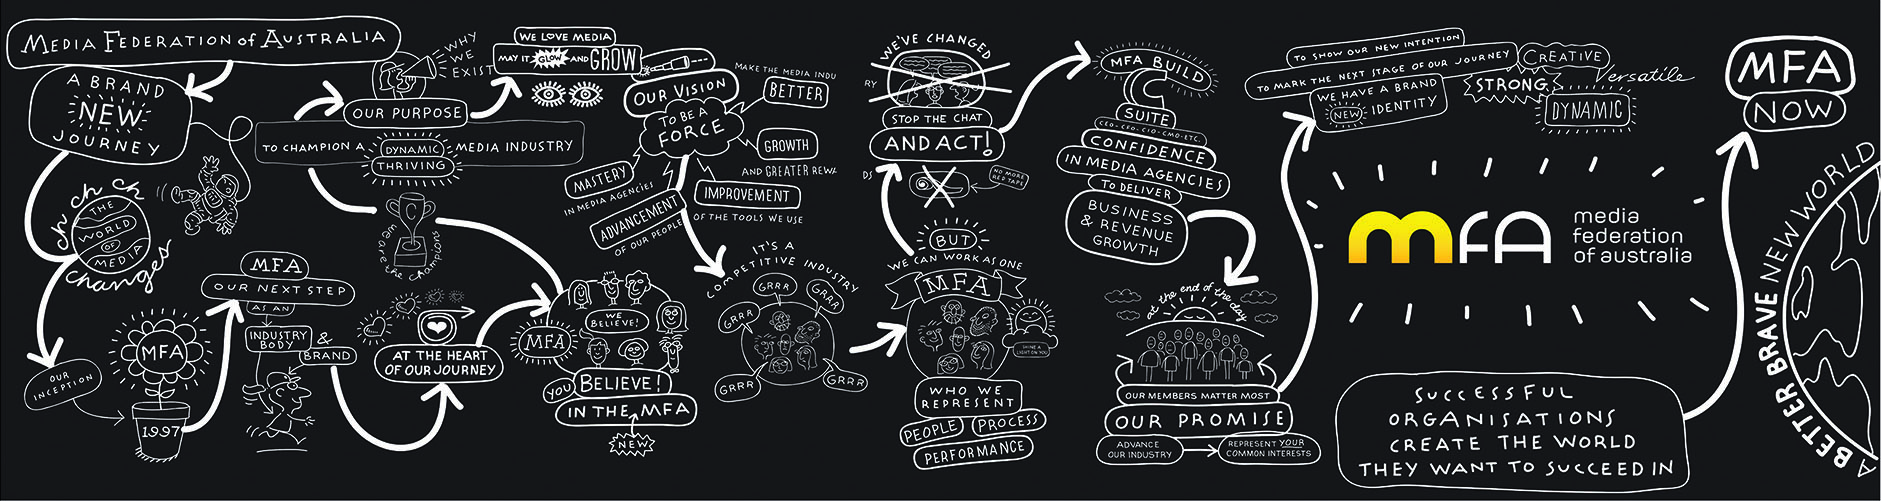 MEDIA FEDERATION of AUSTRALIA
A BRAND
NEW
JOURNEY
ch ch ch ch
changes
THE
WORLD
OF
MEDIA
OUR
INCEPTION
MFA
1997
MFA
OUR NEXT STEP
AS AN
INDUSTRY
BODY
&
BRAND
WHY
WE
EXIST
OUR PURPOSE
TO CHAMPION A DYNAMIC MEDIA INDUSTRY
THRIVING
C
we are the champions
AT THE HEART
OF OUR JOURNEY
WE LOVE MEDIA
MAY IT GLOW AND GROW
MFA
WE
BELIEVE!
YOU BELIEVE!
IN THE MFA
NEW
OUR VISION
TO BE A
FORCE
MAKE THE MEDIA INDU
BETTER
GROWTH
AND GREATER REWA
MASTERY
IN MEDIA AGENCIES
ADVANCEMENT
OF OUR PEOPLE
IMPROVEMENT
OF THE TOOLS WE USE
IT'S A
COMPETITIVE INDUSTRY
GRRR
GRRR
GRRR
GRRR
GRRR
WE'VE CHANGED
RY
STOP THE CHAT
AND ACT!
DS
NO MORE
RED TAPE
BUT
WE CAN WORK AS ONE
MFA
SHINE A
LIGHT ON YOU
WHO WE
REPRESENT
PEOPLE PROCESS
PERFORMANCE
MFA BUILD
C
SUITE
CEO-CFO-CIO-CMO-ETC.
CONFIDENCE
IN MEDIA AGENCIES
TO DELIVER
BUSINESS
& REVENUE
GROWTH
at the end of the day
OUR MEMBERS MATTER MOST
OUR PROMISE
ADVANCE
OUR INDUSTRY
REPRESENT YOUR
COMMON INTERESTS
TO SHOW OUR NEW INTENTION
TO MARK THE NEXT STAGE OF OUR JOURNEY
WE HAVE A BRAND
NEW IDENTITY
CREATIVE
STRONG
versatile
DYNAMIC
mfa
media
federation
of australia
SUCCESSFUL
ORGANISATIONS
CREATE THE WORLD
THEY WANT TO SUCCEED IN
MFA
NOW
A BETTER BRAVE NEW WORLD